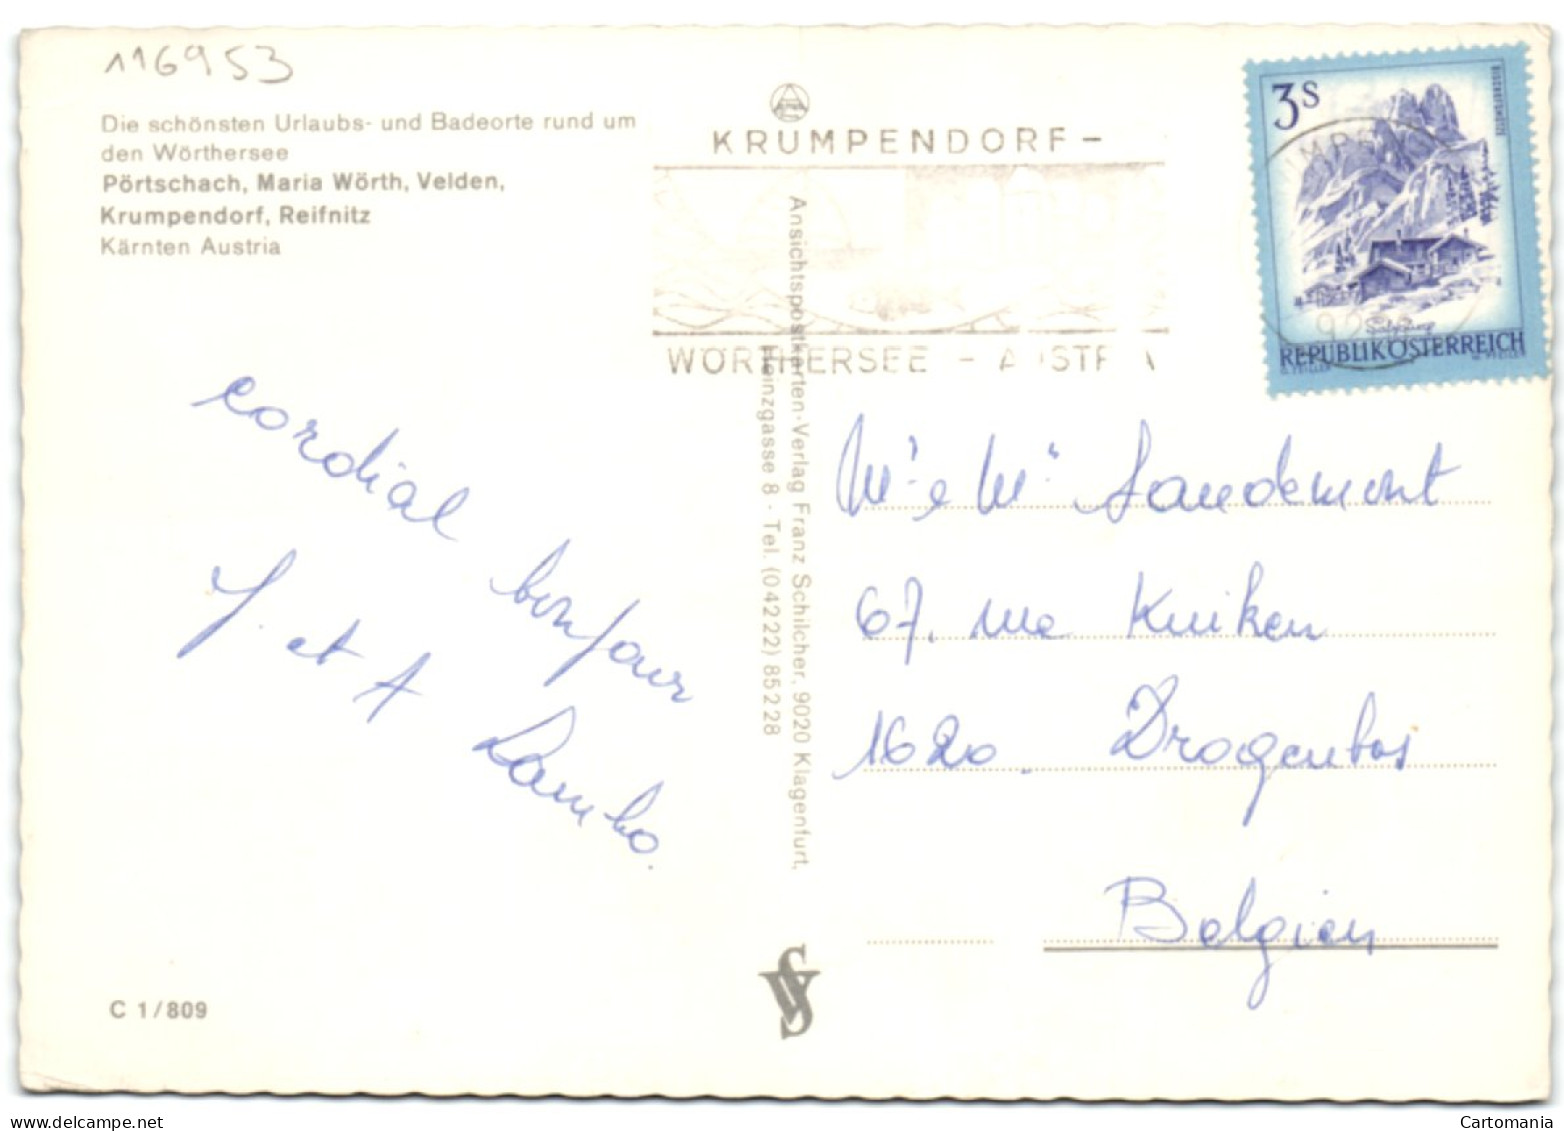 116953
Die schönsten Urlaubs- und Badeorte rund um
den Wörthersee
Pörtschach, Maria Wörth, Velden,
Krumpendorf, Reifnitz
Kärnten Austria
cordial bonjour
J. et A Lambo.
C 1/809
KRUMPENDORF -
WÖRTHERSEE - A STR A
Ansichtspostkarten-Verlag Franz Schilcher, 9020 Klagenfurt,
Heinzgasse 8 · Tel. (04222) 85228
SV
3S
BISCHOFSMÜTZE
Salzburg
REPUBLIK ÖSTERREICH
O. ZEILLER
9201
Mr e Me Landemont
67, rue Kuiken
1620. Drogenbos
Belgien
Cartomania